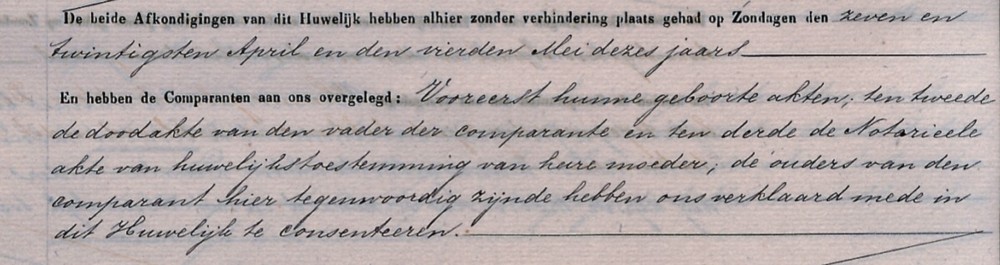 De beide Afkondigingen van dit Huwelijk hebben alhier zonder verhindering plaats gehad op Zondagen den zeven en
twintigsten April en den vierden Mei dezes jaars
En hebben de Comparanten aan ons overgelegd: Vooreerst hunne geboorte akten; ten tweede
de doodakte van den vader der comparante en ten derde de Notarieele
akte van huwelijkstoestemming van hare moeder; de ouders van den
comparant hier tegenwoordig zijnde hebben ons verklaard mede in
dit Huwelijk te consenteeren.